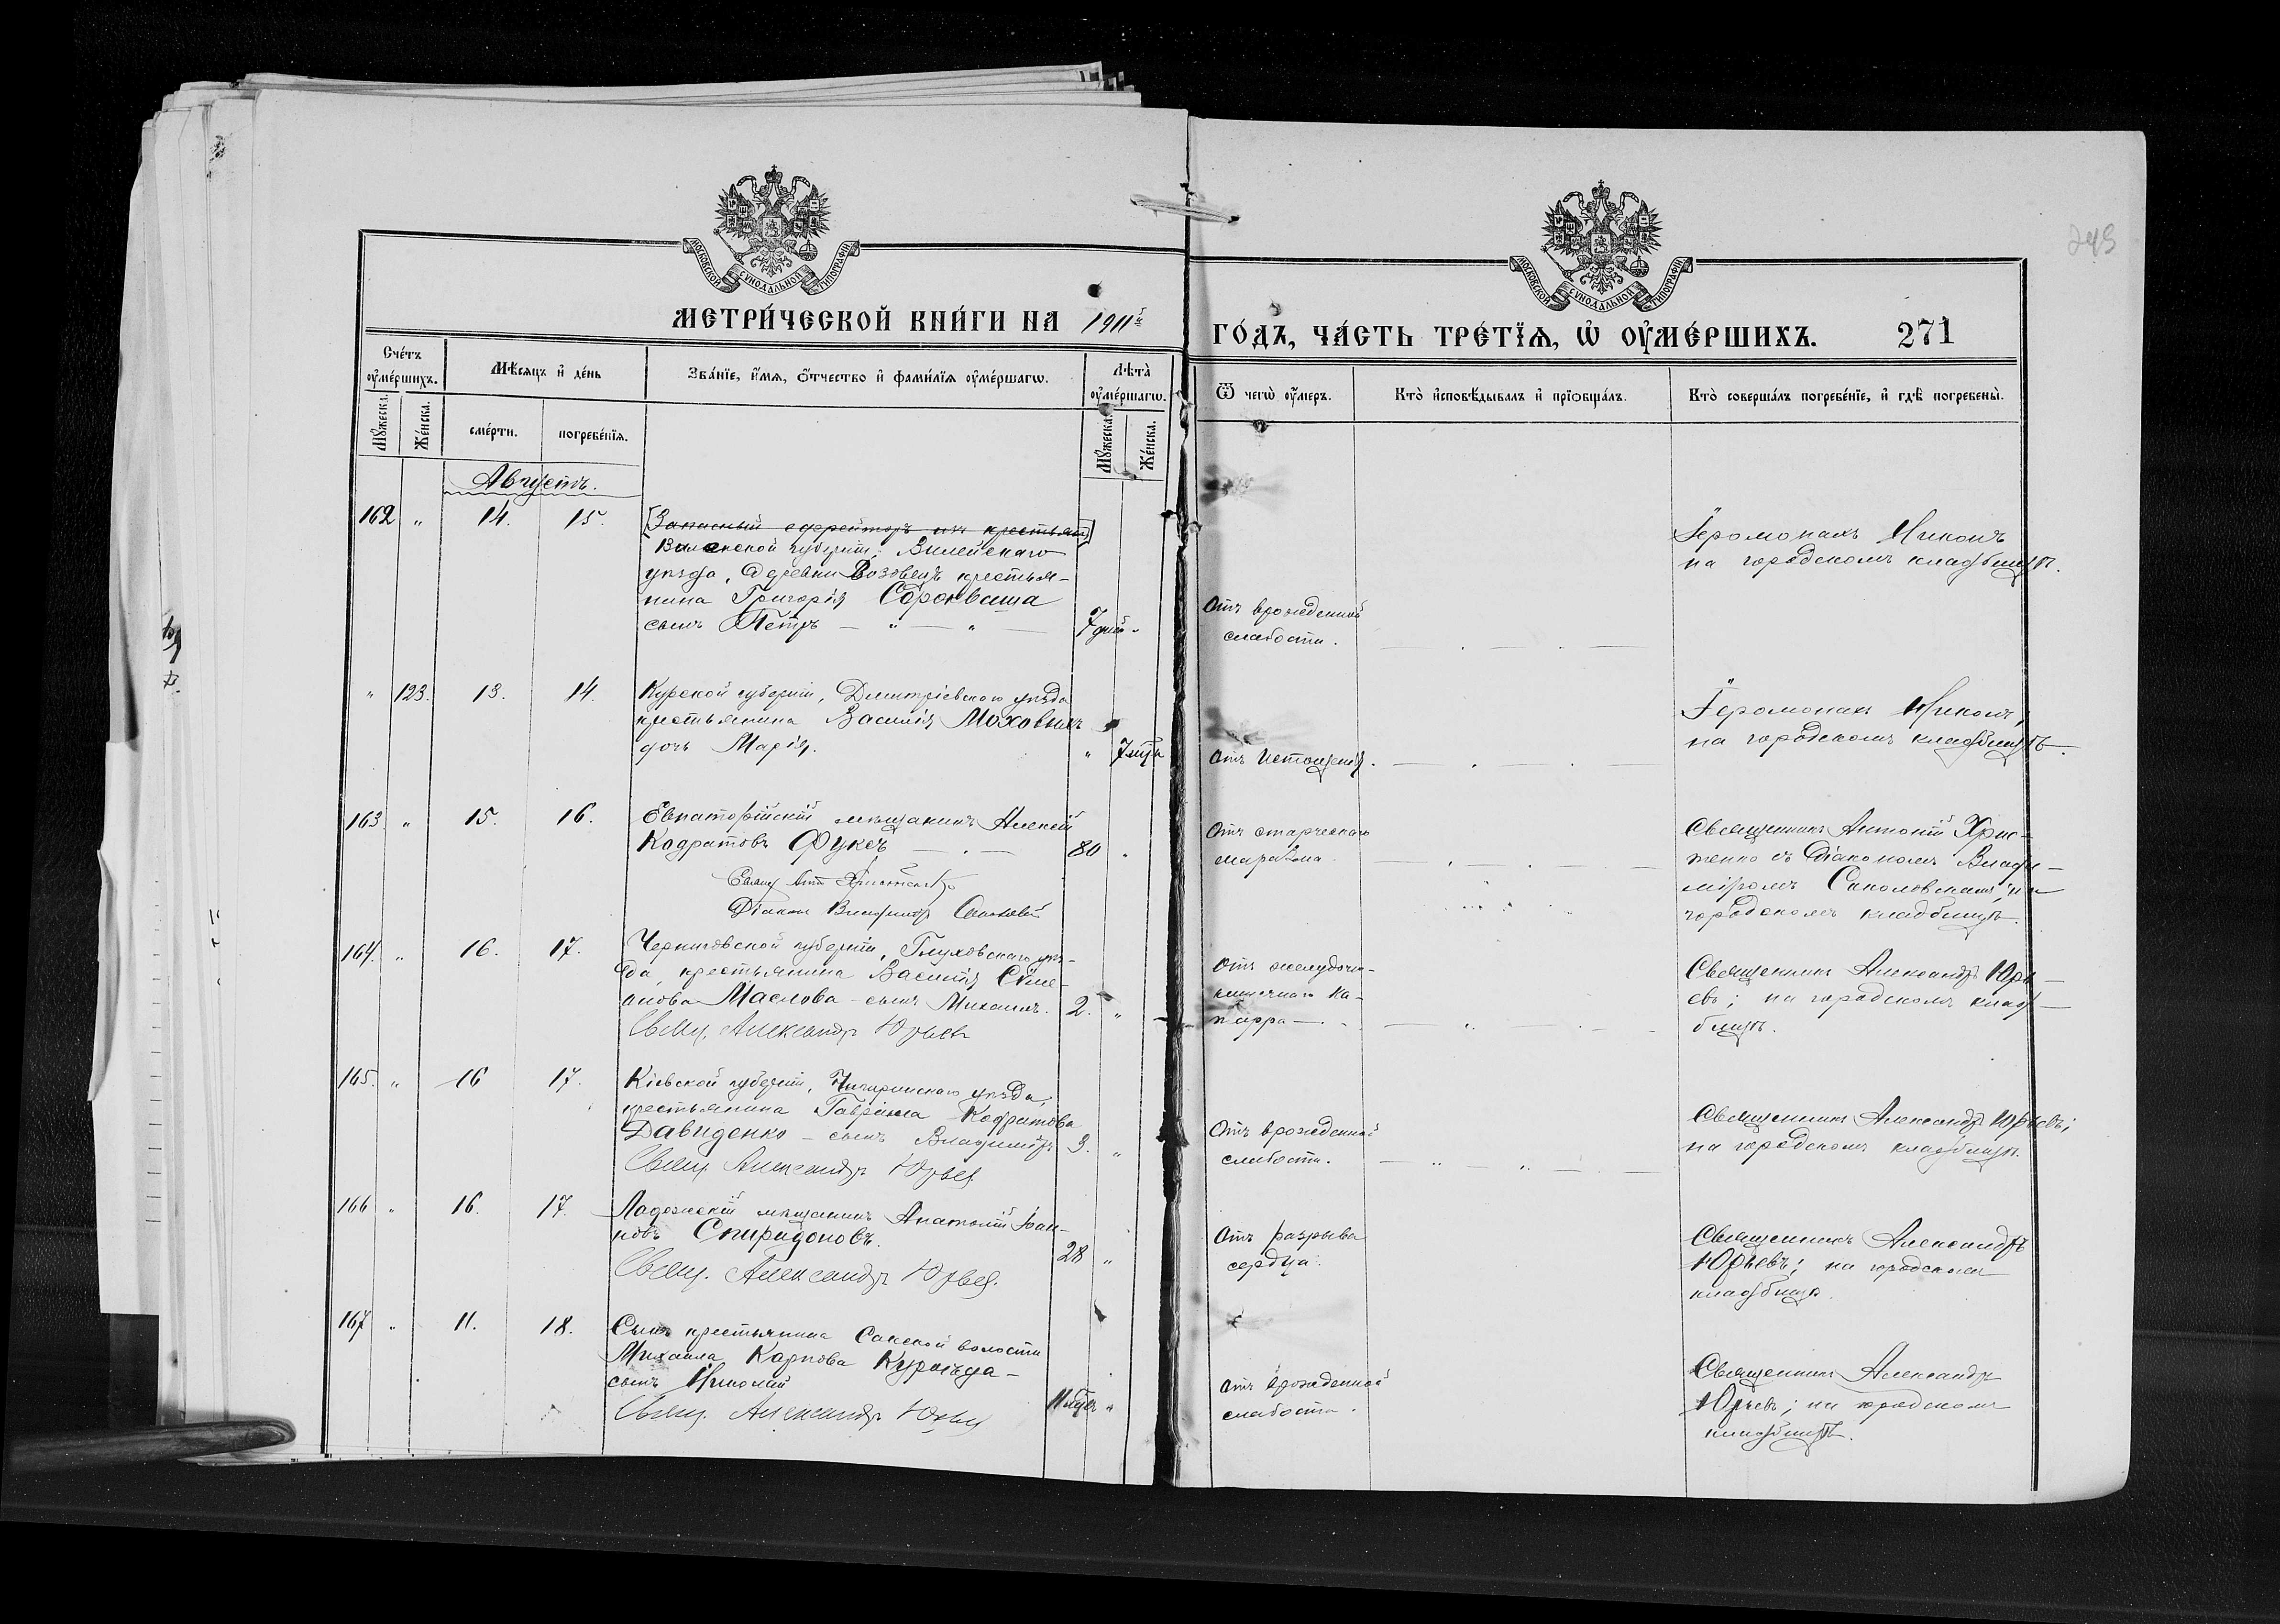 245
МОСКОВСКОЙ СѴНОДАЛЬНОЙ ТИПОГРАФІИ
МОСКОВСКОЙ СѴНОДАЛЬНОЙ ТИПОГРАФІИ
МЕТРИ́ЧЕСКОЙ КНИ́ГИ НА 1911й
ГО́ДЪ, ЧА́СТЬ ТРЕ́ТЇѦ, Ѡ҆ ОУ҆МЕ́РШИХЪ. 271
Сче́тъ оу҆ме́ршихъ.
Мꙋ́жеска.
Же́нска.
Мѣ́сяцъ и҆ де́нь
сме́рти.
погребе́нїѧ.
Зва́нїе, и҆́мѧ, ѻ҆́тчество и҆ фами́лїѧ оу҆ме́ршагѡ.
Лѣ́та̀ оу҆ме́ршагѡ.
Мꙋ́жеска.
Же́нска.
Ѿ чегѡ̀ оу҆́меръ.
Кто̀ и҆сповѣ́дывалъ и҆ прїѡбща́лъ.
Кто̀ соверша́лъ погребе́нїе, и҆ гдѣ̀ погребены̀.
Августъ.
162 " 14. 15.
[Запасный ефрейторъ изъ крестьянъ]
Виленской губерніи, Вилейскаго
уѣзда, деревни крестья-
нина Григорія
сынъ Петръ — " — " —
7 дней "
Отъ врожденной
слабости.
Іеромонахъ Никонъ
на городскомъ кладбищѣ.
" 123. 13. 14.
Курской губерніи, Дмитріевскаго уѣзда
крестьянина Василія
дочь Марія.
" 7 мѣся
Отъ истощенія.
Іеромонахъ Никонъ,
на городскомъ кладбищѣ.
163. " 15. 16.
Евпаторійскій мѣщанинъ Алексій
Кодратовъ Фуксъ
80 "
Діаконъ Владиміръ
Отъ старческаго
маразма.
Священникъ Антоній Хрис-
тенко съ діакономъ Влади-
міромъ Соколовскимъ; на
городскомъ кладбищѣ.
164. " 16. 17.
Черниговской губерніи, Глуховскаго уѣз-
да, крестьянина Василія Симе-
онова Маслова - сынъ Михаилъ.
2. "
Свящ. Александръ Юрьевъ
Отъ желудочно-
кишечнаго ка-
тарра
Священникъ Александръ Юрь-
евъ; на городскомъ клад-
бищѣ.
165. " 16 17.
Кіевской губерніи, Чигиринскаго уѣзда,
крестьянина Гавріила Кодратова
Давиденко - сынъ Владиміръ
3. "
Свящ. Александръ Юрьев
Отъ врожденной
слабости.
Священникъ Александръ Юрьевъ;
на городскомъ кладбищѣ.
166 " 16. 17.
Ладожскій мѣщанинъ Анатолій Іоан-
новъ Спиридоновъ.
28 "
Свящ. Александръ Юрьев.
Отъ разрыва
сердца.
Священникъ Александръ
Юрьевъ; на городскомъ
кладбищѣ.
167 " 11. 18.
Сынъ крестьянина Сакской волости
Михаила Карпова
сынъ Николай
11 мѣся "
Свящ. Александръ Юрьев
Отъ врожденной
слабости.
Священникъ Александръ
Юрьевъ; на городскомъ
кладбищѣ.